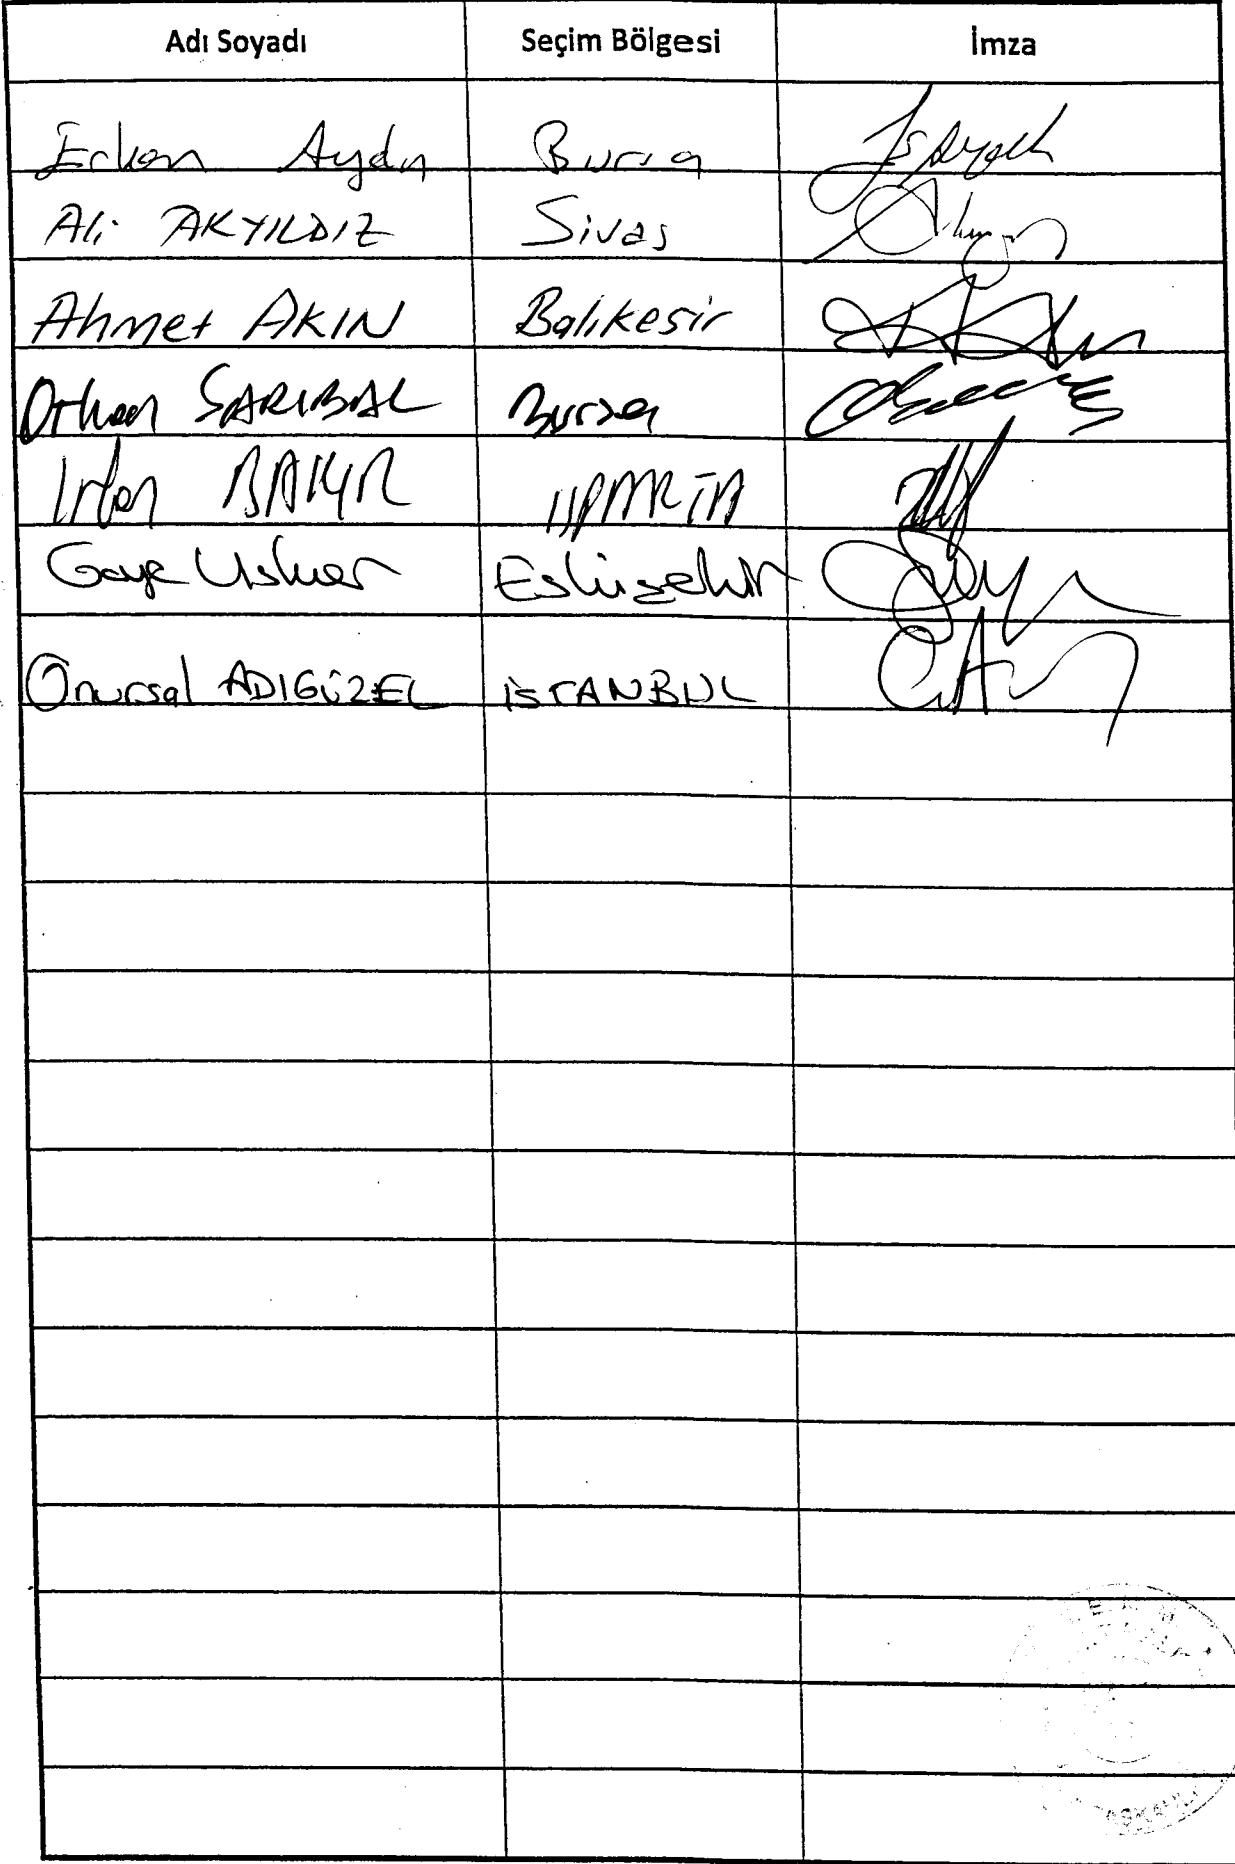 Adı Soyadı Seçim Bölgesi İmza
Erkan Aydın Bursa
Ali AKYILDIZ Sivas
Ahmet AKIN Balıkesir
Orhan SARIBAL Bursa
İrfan BAKIR ISPARTA
Gaye Usluer Eskişehir
Onursal ADIGÜZEL İSTANBUL